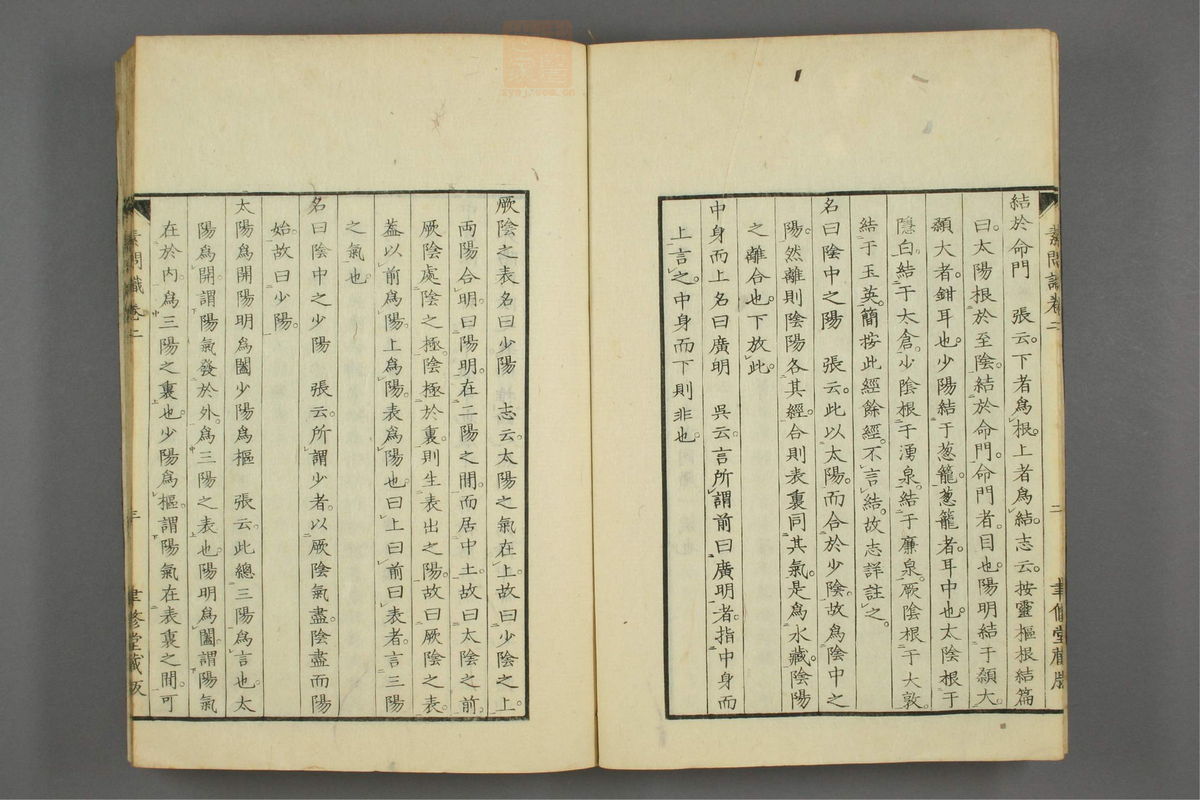 素問識卷二
二
聿修堂藏版
結於命門　張云。下者為根。上者為結。志云。按靈樞根結篇
曰。太陽根於至陰。結於命門。命門者。目也。陽明結于顙大。
顙大者。鉗耳也。少陽結于葱籠。葱籠者。耳中也。太陰根于
隱白。結于大倉。少陰根于湧泉。結于廉泉。厥陰根于大敦。
結于玉英。簡按此經餘經。不言結。故志詳註之。
名曰陰中之陽　張云。此以太陽。而合於少陰。故為陰中之
陽。然離則陰陽各其經。合則表裏同其氣。是為水藏。陰陽
之離合也。下放此。
中身而上名曰廣明　吳云。言所謂前曰廣明者。指中身而
上言之。中身而下則非也。
厥陰之表名曰少陽　志云。太陽之氣在上。故曰少陰之上。
両陽合明。曰陽明。在二陽之間。而居中土。故曰太陰之前。
厥陰處陰之極。陰極於裏。則生表出之陽。故曰厥陰之表。
蓋以前為陽。上為陽。表為陽也。曰上曰前曰表者。言三陽
之氣也。
名曰陰中之少陽　張云。所謂少者。以厥陰氣盡。陰盡而陽
始。故曰少陽。
太陽為開陽明為闔少陽為樞　張云。此總三陽為言也。太
陽為開。謂陽氣發於外。為三陽之表也。陽明為闔。謂陽氣
在於內。為三陽之裏也。少陽為樞。謂陽氣在表裏之間。可
素問識卷二
三
聿修堂藏版